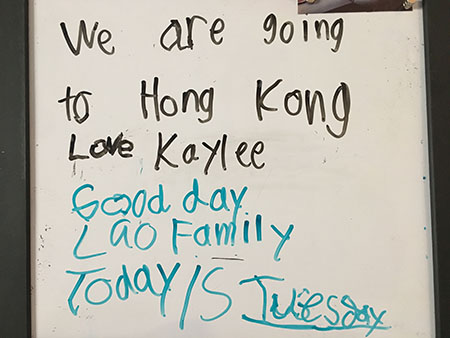 We are going
to Hong Kong
Love Kaylee
Good day
Lao Family
Today is Tuesday